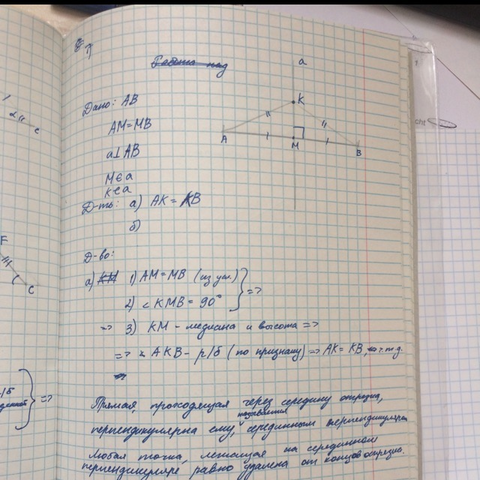 a
K
A
M
B
Дано: AB
AM=MB
a⊥AB
M∈a
K∈a
Д-ть: а) AK=KB
б)
Д-во:
а) 1) AM=MB (из усл.)
2) <KMB=90° } =>
=> 3) KM - медиана и высота =>
=> AKB - р/б (по признаку) => AK=KB,
Прямая, проходящая через середину отрезка,
называется
перпендикулярна ему, серединным перпендикуляром
Любая точка, лежащая на серединном
перпендикуляре равно удалена от концов отрезка.